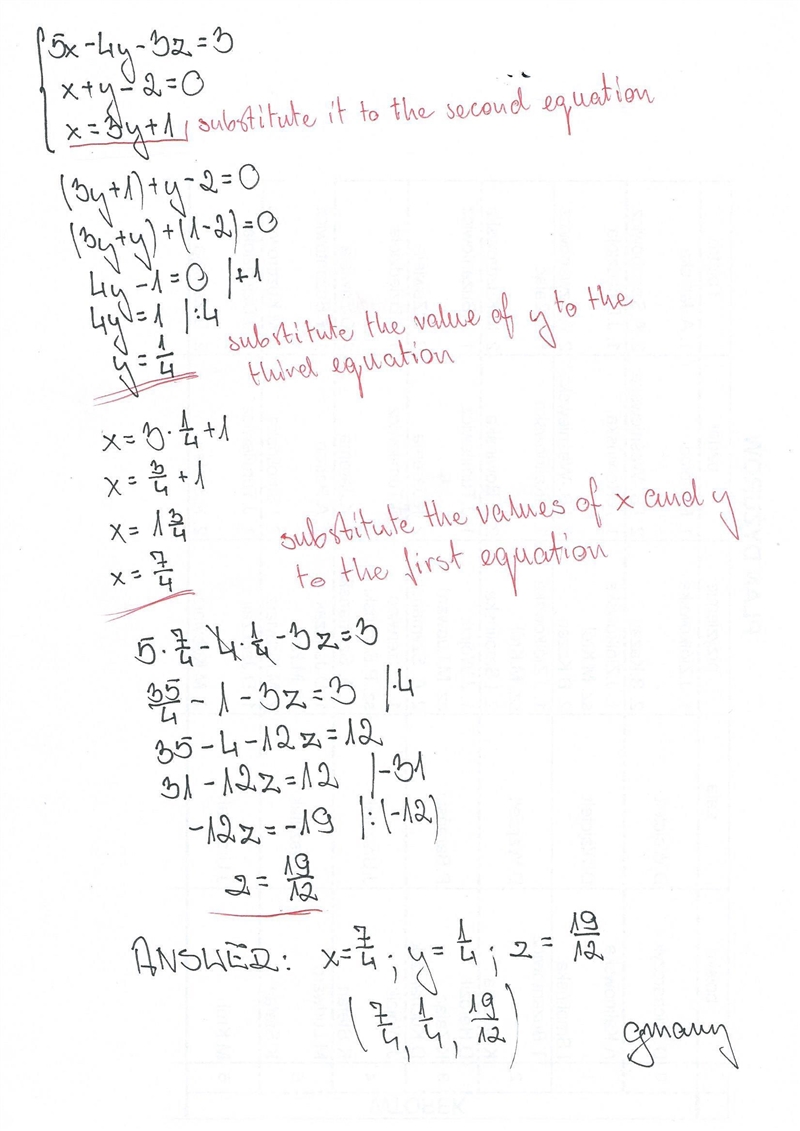 5x-4y-3z=3
x+y-2=0
x=3y+1 substitute it to the second equation
(3y+1)+y-2=0
(3y+y)+(1-2)=0
4y-1=0 |+1
4y=1 |:4
y=1/4
substitute the value of y to the
third equation
x=3·1/4+1
x=3/4+1
x=1 3/4
x=7/4
substitute the values of x and y
to the first equation
5·7/4-4·1/4-3z=3
35/4-1-3z=3 |·4
35-4-12z=12
31-12z=12 |-31
-12z=-19 |:(-12)
z=19/12
ANSWER: x=7/4; y=1/4; z=19/12
(7/4, 1/4, 19/12)
gmany